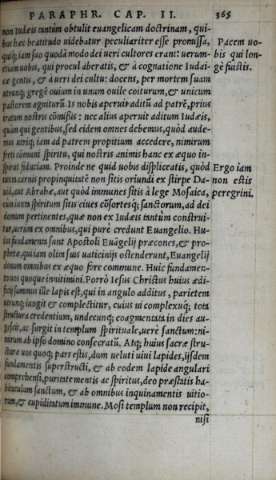 PARAPHR. CAP. II. 365
non Iudæis tantùm obtulit euangelicam doctrinam, qui-
bus hæc beatitudo uidebatur peculiariter esse promissa,
quiq; iam suo quodã modo dei ueri cultores erant: uerum-
etiam uobis, qui procul aberatis, & à cognatione Iudai-
cæ gentis, & à ueri dei cultu: docens, per mortem suam
utrunq; gregẽ ouium in unum ouile coiturum, & unicum
pastorem agniturũ. Is nobis aperuit aditũ ad patrẽ, prius
iratum nostris cõmissis: nec alius aperuit aditum Iudæis,
quàm qui gentibus, sed eidem omnes debemus, quòd aude-
mus utriq; iam ad patrem propitium accedere, nimirum
freti cõmuni spiritu, qui nostris animis hanc ex æquo in-
spirat fiduciam. Proinde ne quid uobis displiceatis, quòd
iuxta carnis propinquitatẽ non sitis oriundi ex stirpe Da-
uid, aut Abrahæ, aut quòd immunes sitis à lege Mosaica,
cùm iuxta spiritum sitis ciues cõsortesq; sanctorum, ad dei
domum pertinentes, quæ non ex Iudæis tantùm construi-
tur, uerum ex omnibus, qui purè credunt Euangelio. Hu-
ius fundamenta sunt Apostoli Euãgelij præcones, & pro-
phetæ, quia iam olim suis uaticinijs ostenderunt, Euangelij
donum omnibus ex æquo fore commune. Huic fundamen-
to uos quoque innitimini. Porrò Iesus Christus huius ædi-
ficij summus ille lapis est, qui in angulo additus, parietem
utrunq; iungit & complectitur, cuius ui complexuq; tota
structura credentium, undecunq; coagmentata in dies au-
gescit, ac surgit in templum spirituale, uerè sanctum: ni-
mirum ab ipso domino consecratũ. Atq; huius sacræ stru-
cturæ uos quoq; pars estis, dum ueluti uiui lapides, ijsdem
fundamentis superstructi, & ab eodem lapide angulari
comprehensi, puritate mentis ac spiritus, deo præstatis ha-
bitaculum sanctum, & ab omnibus inquinamentis uitio-
rum, & cupiditatum immune. Mosi templum non recipit,
nisi
Pacem uo-
bis qui lon-
gè fuistis.
Ergo iam
non estis
peregrini,